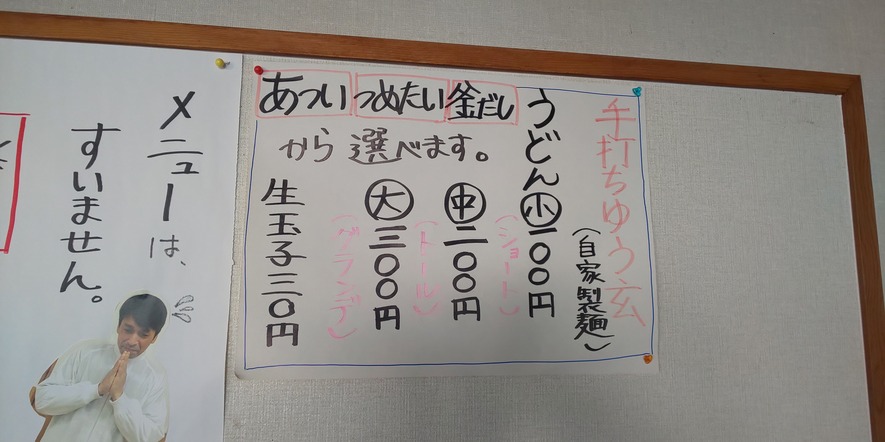 手打ちゆう玄
（自家製麺）
うどん小一００円
（ショート）
中二００円
（トール）
大三００円
（グランデ）
生玉子三０円
あつい つめたい 釜だし
から選べます。
メニューは、
すいません。